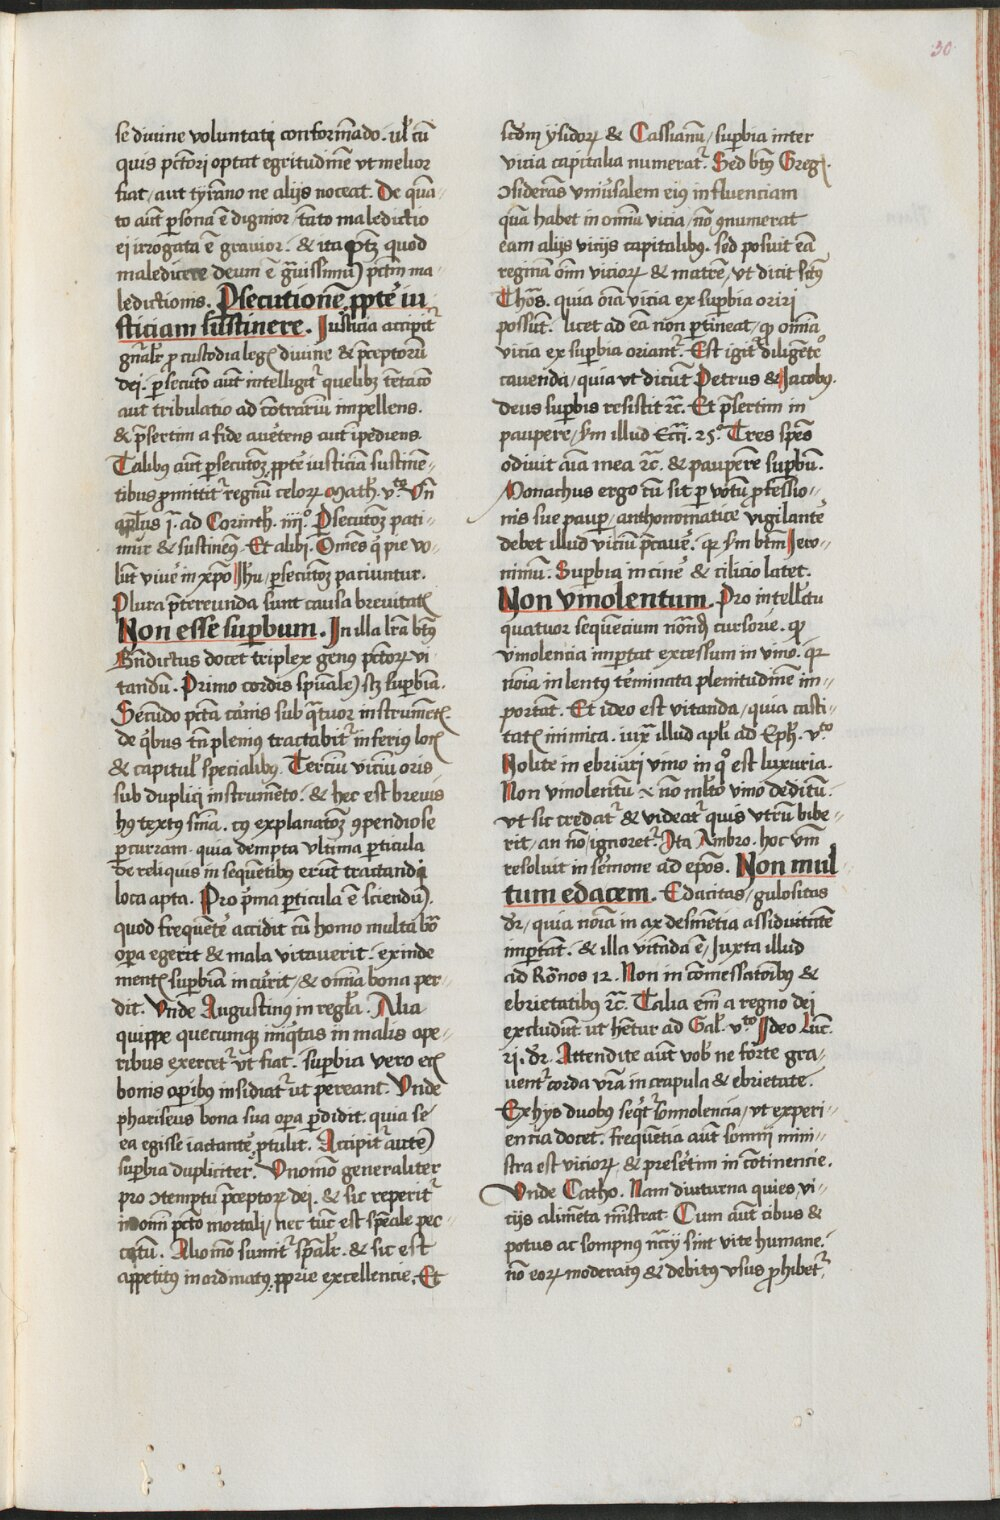 30
se diuine voluntati conformādo. ul̄ cū
quis pctōri optat egritudinē vt melior
fiat / aut tyrāno ne alijs noceat. De quā
to aut̄ ꝑsona ē dignior / tāto maledictio
ei irrogata ē grauior. & ita ptꝫ quod
maledicere deum ē g̃uissimū pctm̄ ma-
ledictionis. Ꝑsecutionē ꝓpt̄ iu
sticiam sustinere. Iusticia accipit᷑
gn̄alr̄ ꝓ custodia legꝭ diuine & p̄ceptorū
dei. ꝑsecutō aut̄ intelligit᷑ quelibꝫ tētacō
aut tribulatio ad cōtrariū impellens.
& p̄sertim a fide auertens aut īpediens.
Talibꝰ aut̄ ꝑsecutōꝫ ꝓpt̄ iusticiā sustinē-
tibus ꝓmittit᷑ regnū celoꝝ Math. v.to Vn̄
apl̄us j. ad Corinth. iiij.o Ꝑsecutōꝫ pati-
mur & sustinemꝰ. Et alibi. Omēs q̇ pie vo-
lūt viuē in xp̄o Ihu / ꝑsecutōꝫ paciuntur.
Plura p̄tereunda sunt causa breuitatꝭ
Non esse suꝑbum. In illa lr̄a btūs
Bn̄dictus docet triplex genꝰ pctōꝝ vi
tandū. Primo cordis spūale scꝫ suꝑbia.
Secundo pctā carnis sub q̃tuor instrumētꝭ.
de q̇bus tn̄ pleniꝰ tractabit᷑ inferiꝰ locꝭ
& capitul̄ specialibꝰ. Terciū viciū oris
sub duplici instrumēto. & hec est breuis
hꝰ textꝰ sm̄ia. cꝰ explanatōꝫ ꝯpendiose
ꝑcurram. quia dempta vltima ꝑticula
de reliquis in sequētibꝰ erūt tractandi
loca apta. Pro p̄ma ꝑticula ē sciendū
quod frequēt̄ accidit cū homo multa bōa
oꝑa egerit & mala vitauerit. exinde
mentꝭ suꝑbiā incurrit / & om̄ia bona per-
dit. Vnde Augustinꝰ in regl̄a. Alia
quippe quecumqꝫ iniq̇tas in malis ope-
ribus exercet᷑ vt fiat. suꝑbia vero eciā
bonis oꝑibus insidiat᷑ ut pereant. Vnde
phariseus bona sua oꝑa ꝑdidit. quia se
ea egisse iactant̄ ꝓtulit. Accipit᷑ autē
suꝑbia dupliciter. Vnomō generaliter
pro ꝯtemptu p̄ceptoꝝ dei. & sic reperit᷑
in omī pctō mortali / nec tūc est spēale pec-
catū. Aliomō sumit᷑ spālr̄. & sic est
appetitꝰ inordinatꝰ ꝓprie excellencie. Et
scdm ysidoꝝ & Cassianū / suꝑbia inter
vicia capitalia numerat᷑. Sed btūs Gregꝭ.
ꝯsiderās vniūsalem eiꝰ influenciam
quā habet in omnia vicia / nō ꝯnumerat
eam alijs vicijs capitalibꝰ. sed posuit eā
reginā oīm vicioꝝ & matrē / vt dicit sctūs
Thōs. quia oīa vicia ex suꝑbia oriri
possūt. licet ad eā non ꝑtineat / qꝫ omīa
vicia ex suꝑbia oriant᷑. Est igit᷑ diligent̄
cauenda / quia vt dicūt Petrus & Jacobꝰ.
deus suꝑbis resistit rc̄. Et p̄sertim in
paupere / sm̄ illud Eccl̄i. 25.o Tres spēs
odiuit aīa mea rc̄. & pauperē suꝑbū.
Monachus ergo cū sit ꝑ votū ꝓfessio-
nis sue pauꝑ / anthonomatice vigilant̄
debet illud viciū p̄cauē. qꝛ sm̄ btm̄ Iero-
nimū. Suꝑbia in cinē & cilicio latet.
Non vinolentum. Pro intellc̄tu
quatuor sequēcium nōnd̄ cursorie. qꝫ
vinolencia importat excessum in vino. qꝛ
nōia in lentꝰ t̄minata plenitudinē im-
portāt. Et ideo est vitanda / quia casti-
tatꝭ inimica. iux̄ illud apl̄i ad Eph̄. v.to
Nolite inebriari vino in qo est luxuria.
Non vinolentū .i. nō ml̄to vino deditū.
vt sic credat᷑ & videat᷑ quis vtrū bibe-
rit / an nō / ignoret᷑. Ita Ambro. hoc vm̄
resoluit in s̄mone ad epōs. Non mul
tum edacem. Edacitas / gulositas
dr̄ / quia nōia in ax desinētia assiduitatē
importāt. & illa vitāda ē / Juxta illud
ad Rōnos 12. Non in cōmessatōibꝰ &
ebrietatibꝰ rc̄. Talia em̄ a regno dei
excludūt. ut hētur ad Gal. v.to Ideo Luc.
xj. dr̄. Attendite aut̄ vob̄ ne forte gra-
uent᷑ corda vrā in crapula & ebrietate.
Ex hys duobus seq̇t᷑ sompnolencia / vt experi-
encia docet. frequētia aut̄ somnij mini-
stra est vicioꝝ, & presertim incōtinencie.
Vnde Catho. Nam diuturna quies / vi-
cijs alimēta m̄istrat. Cum aut̄ cibus &
potus ac sompnꝰ nccīj sint vite humane.
nō eoꝝ moderatꝰ & debitꝰ vsus ꝓhibet᷑,